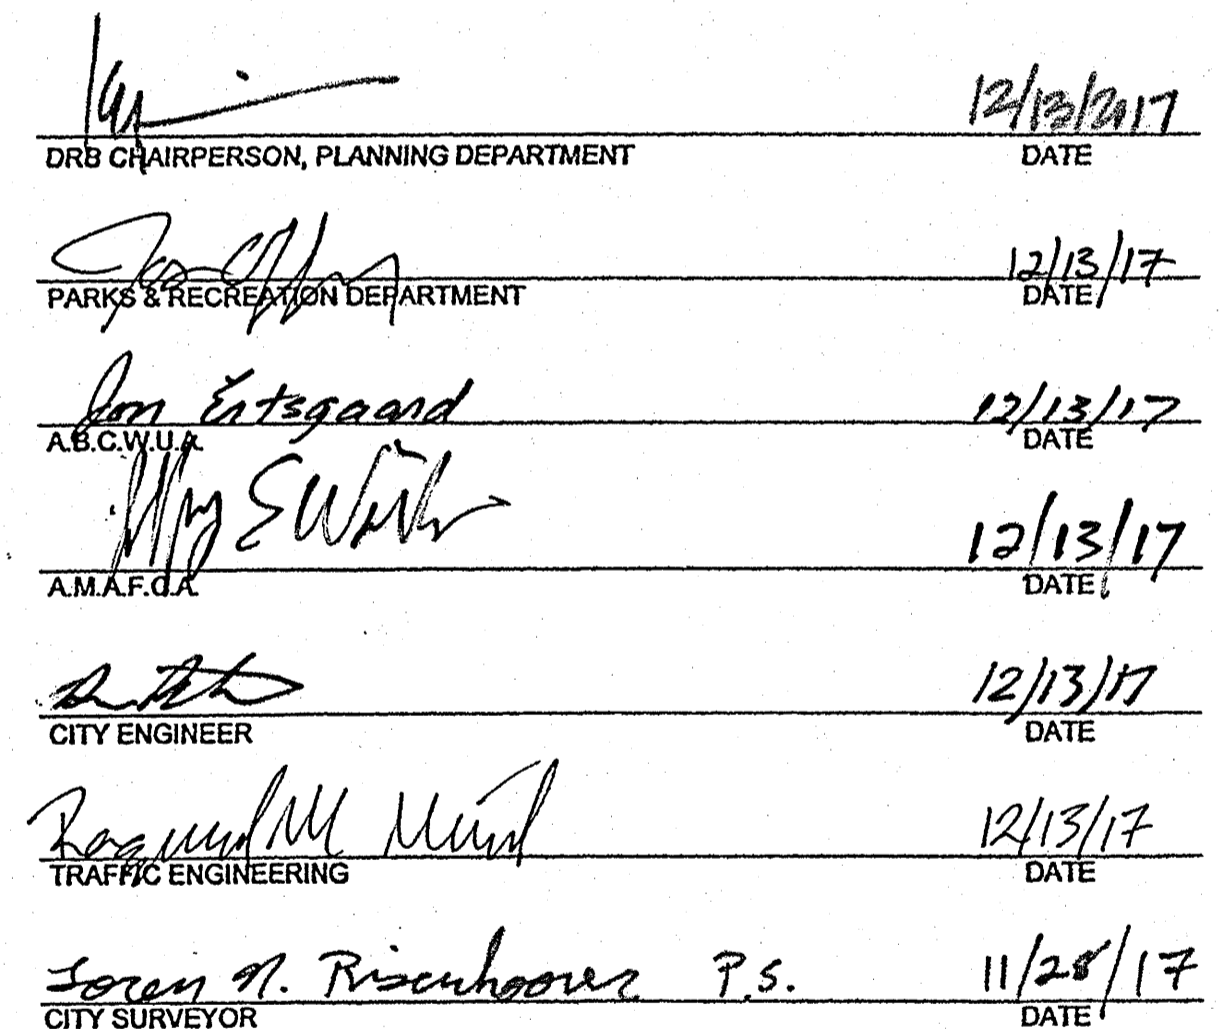 12/13/2017
DRB CHAIRPERSON, PLANNING DEPARTMENT DATE
12/13/17
PARKS & RECREATION DEPARTMENT DATE
Jon Ertsgaard 12/13/17
A.B.C.W.U.A. DATE
12/13/17
A.M.A.F.C.A. DATE
12/13/17
CITY ENGINEER DATE
12/13/17
TRAFFIC ENGINEERING DATE
Loren N. Risenhoover P.S. 11/28/17
CITY SURVEYOR DATE